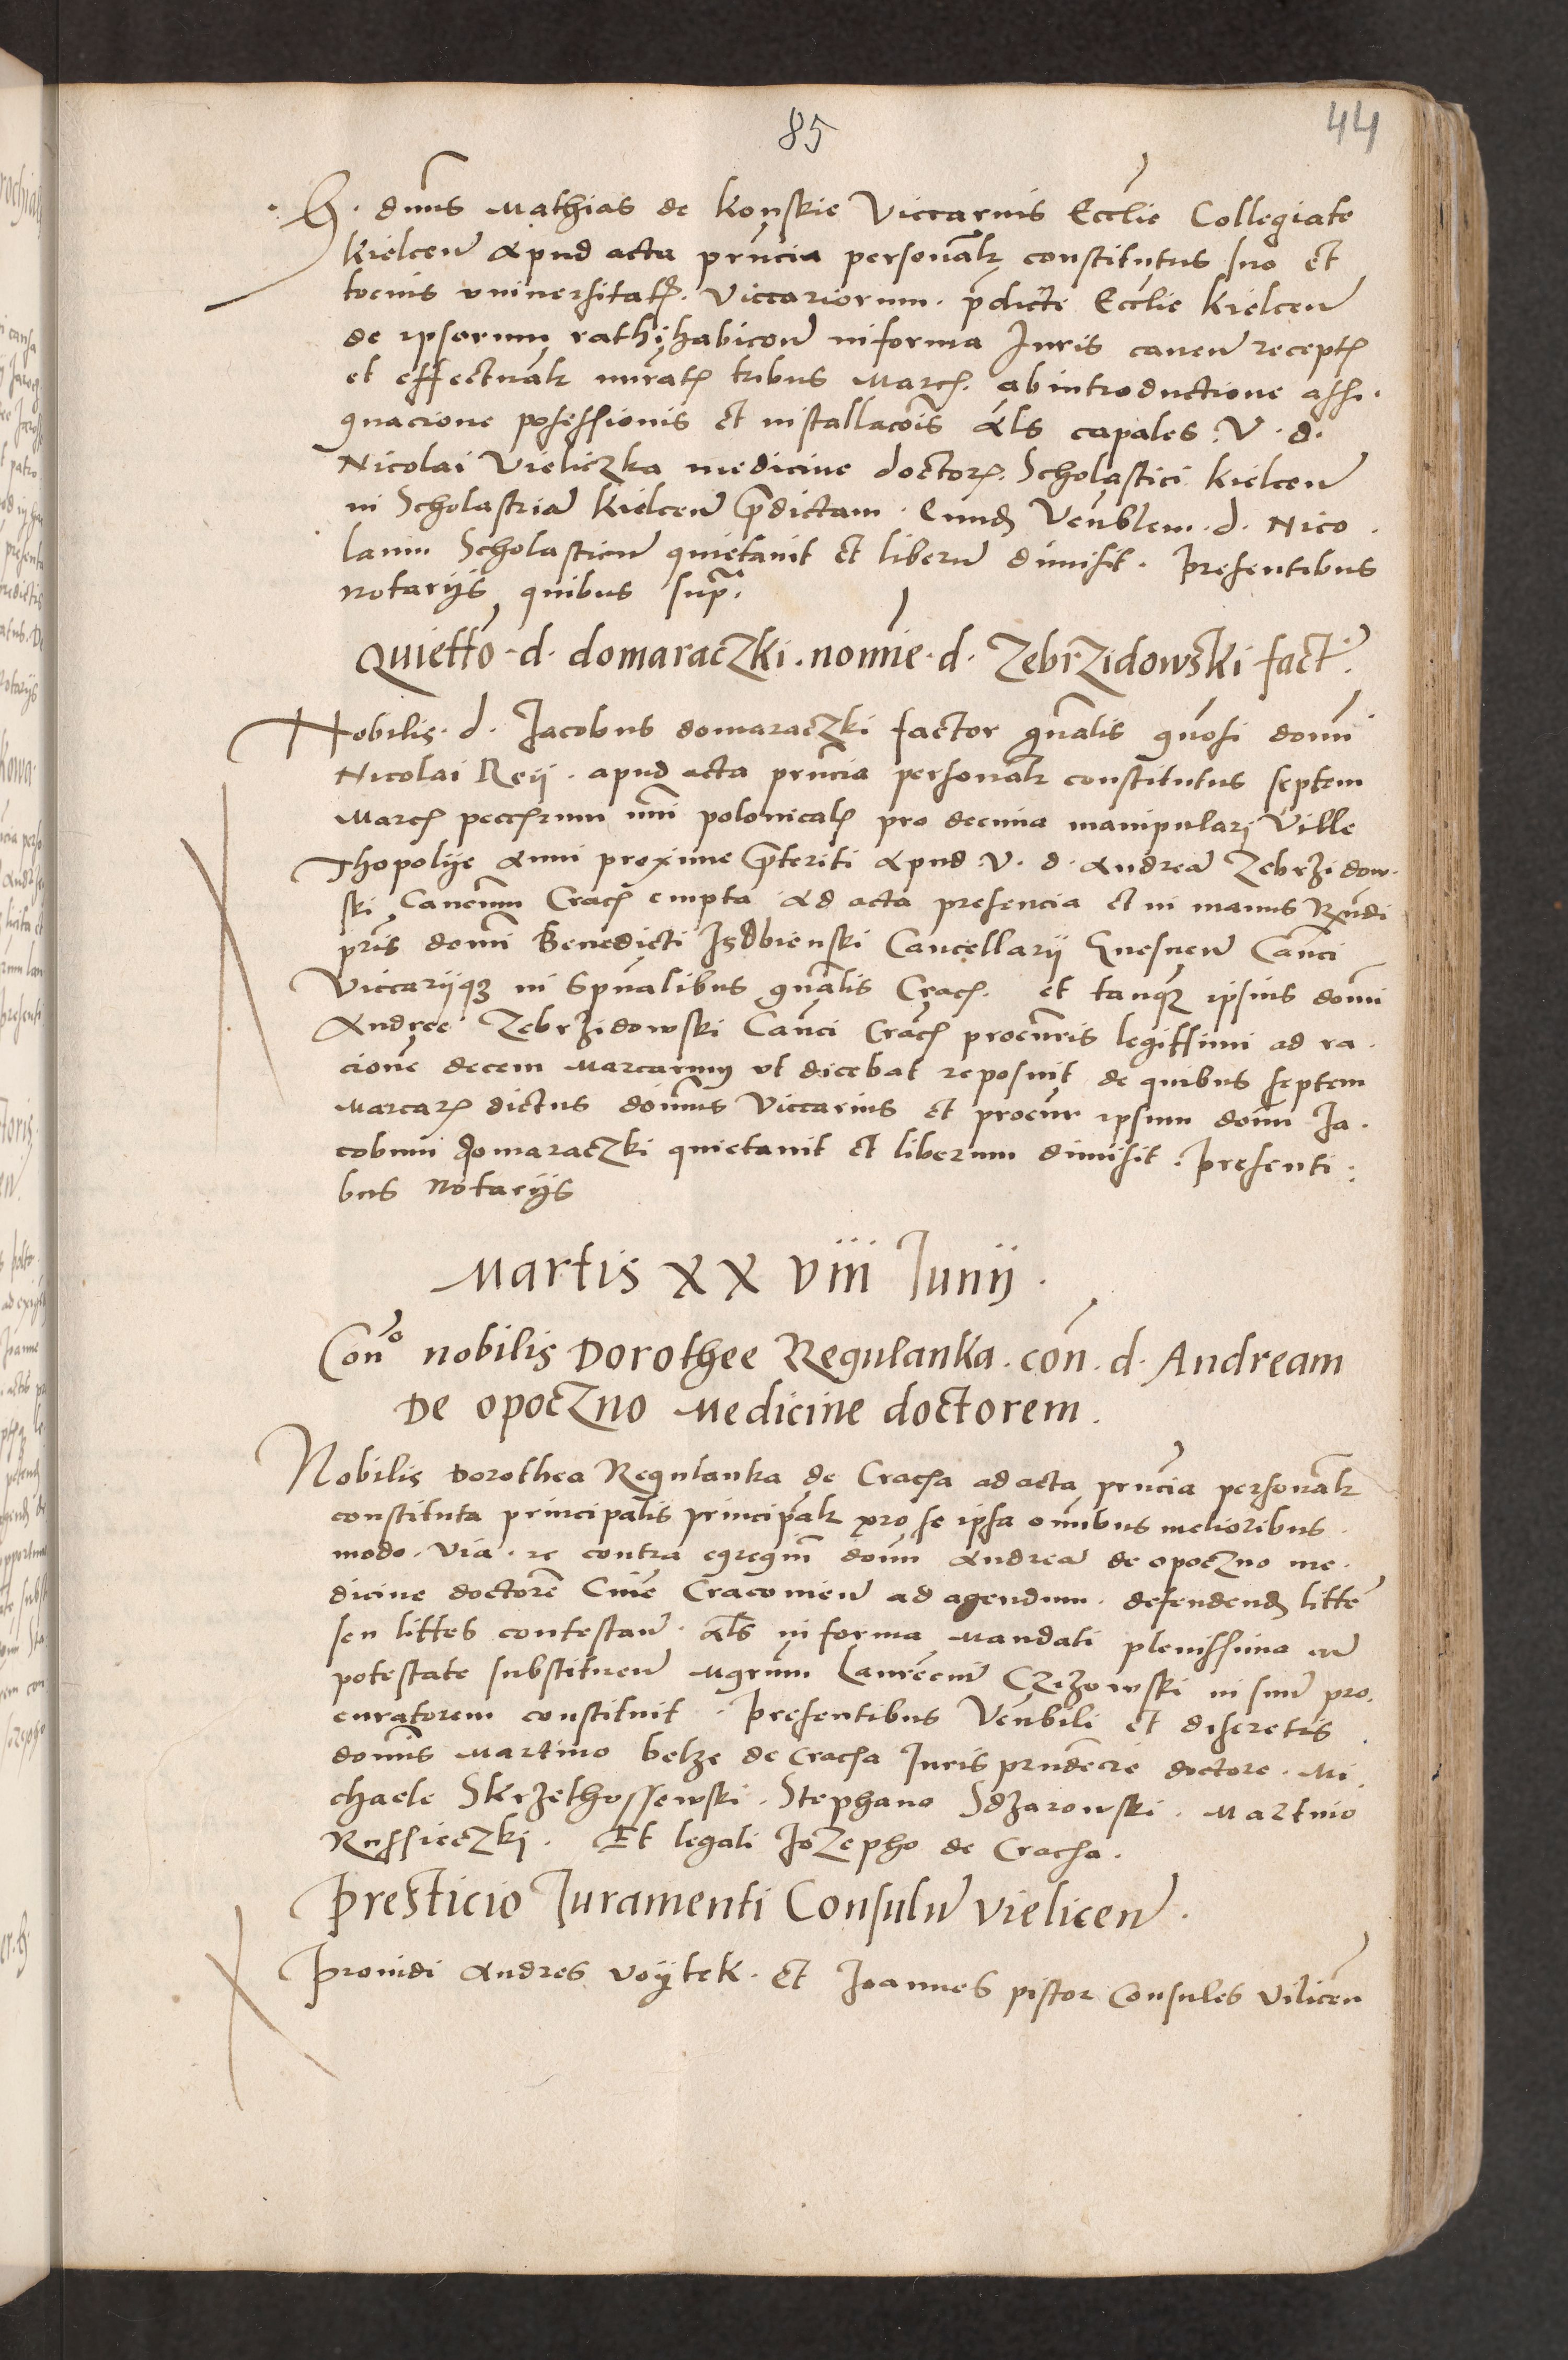 85
44
H. dnus Mathias de Konskie Viccarius Ecclie Collegiate
Kielcen apud acta prncia personalr constitutus suo et
tocius universitatis. Viccariorum. pdicte Ecclie Kielcen
de ipsorum rathihabicon in forma Iuris caven receptis
et effectualr nuratis tribus Marcis. ab introductione assi.
gnacione posessionis et installacois als capales. V. d.
Nicolai Vieliczka medicine doctoris. Scholastici Kielcen
in Scholastria Kielcen predictam. Eund Venblem. d. Nico.
laum Scholasticu quietavit et liberu dimisit. presentibus
notariis quibus supra.
Quietto. d. domaraczki. nomie. d. Zebrzidowski fact.
Nobilis. d. Iacobus domaraczki factor gnalis gnosi domi
Nicolai Reij. apud acta prncia personalr constitutus septem
Marcis pecciarum nui polonicalis pro decima manipulari Ville
Thopolije anni proxime preteriti apud V. d. Andrea Zebrzidow.
ski Canonum Crac empta ad acta presencia et in manus Rndi
pris domi Benedicti Isdbienski Cancellarij Gnesnen Canci
Viccarijq in Spualibus gnalis Crac. et tanq ipsius domi
Andree Zebrzidowski Canci Crac procuris legittimi ad ra.
cione decem Marcarum ut dicebat reposuit de quibus septem
Marcaris dictus domus Viccarius et procur ipsum domi Ia.
cobum domaraczki quietavit et liberum dimisit. presenti:
bus Notariis
Martis XX viii Iunij.
Cono nobilis Dorothee Regulanka. con. d. Andream
De opoczno Medicine doctorem.
Nobilis Dorothea Regulanka de Cracha ad acta prncia personalr
constituta principalis principalr pro se ipsa omibus melioribus
modo. via. re contra egregium domi Andrea de opoczno me.
dicine doctore Cive Cracovien ad agendum. defendend litte
seu littes contestan. als in forma Mandati plenissima cu
potestate substituen Mgrum Laurencium Czizowski in suu pro.
curatorem constituit. presentibus Venbili et discretis
domis Martino belze de Cracha Iuris prudencie doctore. Mi.
chaele Skrzethossewski. Stephano Sdzarowski. Martino
Russieczki. Et legali Iozepho de Cracha.
presticio Iuramenti Consulu Vielicen.
providi Andres Voytek. et Ioannes pistor Consules Vilicen